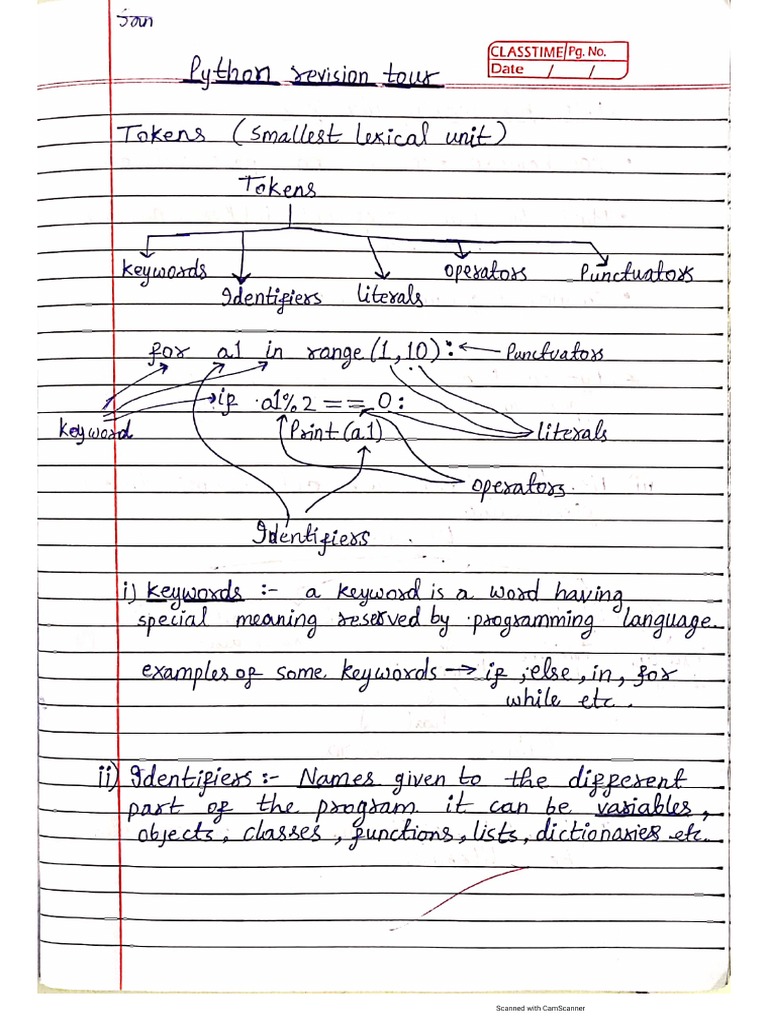 CLASSTIME/Pg. No.
Date / /
Python revision tour
Tokens (smallest lexical unit)
Tokens
Keywords
Identifiers
literals
operators
Punctuators
for a1 in range(1,10): Punctuators
if a1%2 == 0:
Keyword
Print(a1)
literals
operators
Identifiers
i) Keywords :- a keyword is a word having
special meaning reserved by programming language.
examples of some keywords → if, else, in, for
while etc.
ii) Identifiers :- Names given to the different
part of the program it can be variables,
objects, classes, functions, lists, dictionaries etc.
Scanned with CamScanner